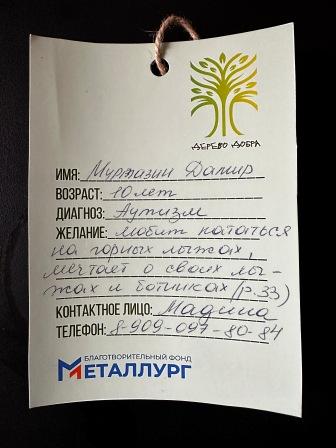 ДЕРЕВО ДОБРА
ИМЯ: Муртазин Дамир
ВОЗРАСТ: 10 лет
ДИАГНОЗ: Аутизм
ЖЕЛАНИЕ: любит кататься
на горных лыжах,
мечтает о своих лы-
жах и ботинках (р.33)
КОНТАКТНОЕ ЛИЦО: Мадина
ТЕЛЕФОН: 8-909-097-80-84
БЛАГОТВОРИТЕЛЬНЫЙ ФОНД
МЕТАЛЛУРГ